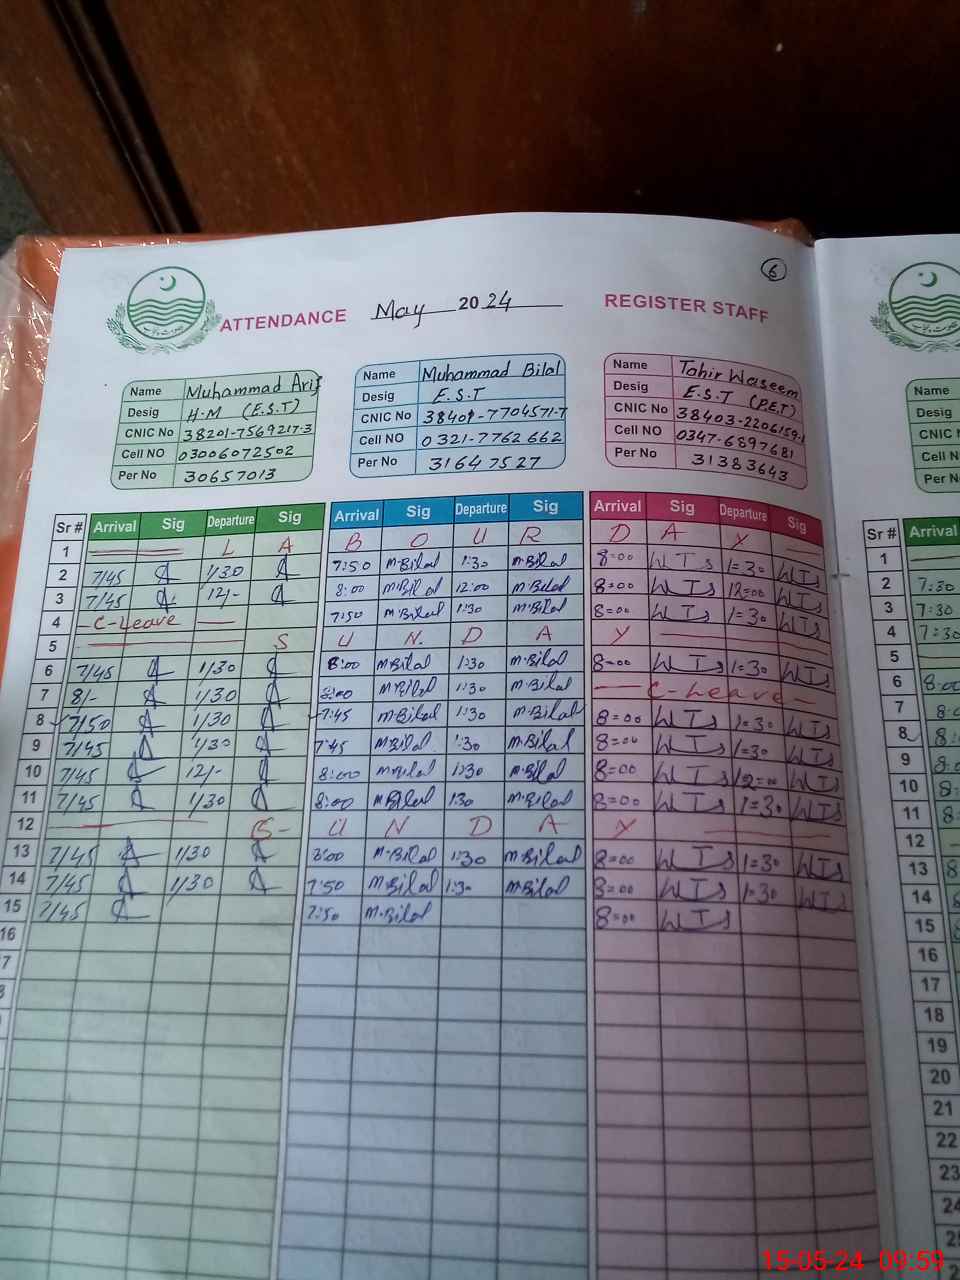 6
ATTENDANCE May 2024 REGISTER STAFF
Name Muhammad Arif
Desig H.M (E.S.T)
CNIC No 38201-7569217-3
Cell NO 03006072502
Per No 30657013
Name Muhammad Bilal
Desig E.S.T
CNIC No 38401-7704571-7
Cell NO 0321-7762662
Per No 31647527
Name Tahir Waseem
Desig E.S.T (P.E.T)
CNIC No 38403-2206159-1
Cell NO 0347-6897681
Per No 31383643
Name
Desig
CNIC
Cell N
Per N
Sr # Arrival Sig Departure Sig Arrival Sig Departure Sig Arrival Sig Departure Sig Sr # Arrival
1 L A B O U R D A Y 1
2 7/45 1/30 7:50 M.Bilal 1:30 M.Bilal 8=00 WTs 1=30 WTs 2 7:30
3 7/45 12/- 8:00 M.Bilal 12:00 M.Bilal 8=00 WTs 12=00 WTs 3 7:30
4 C-Leave 7:50 M.Bilal 1:30 M.Bilal 8=00 WTs 1=30 WTs 4 7:30
5 S U N D A Y 5
6 7/45 1/30 8:00 M.Bilal 1:30 M.Bilal 8=00 WTs 1=30 WTs 6 8:00
7 8/- 1/30 8:00 M.Bilal 1:30 M.Bilal C-Leave 7 8:
8 7/50 1/30 7:45 M.Bilal 1:30 M.Bilal 8=00 WTs 1=30 WTs 8 8:
9 7/45 1/30 7:45 M.Bilal 1:30 M.Bilal 8=00 WTs 1=30 WTs 9 8:
10 7/45 12/- 8:00 M.Bilal M.Bilal 8=00 WTs 12=00 WTs 10 8:
11 7/45 1/30 8:00 M.Bilal 1:30 M.Bilal 8=00 WTs 1=30 WTs 11 8:
12 S U N D A Y 12
13 7/45 1/30 8:00 M.Bilal 1:30 M.Bilal 8=00 WTs 1=30 WTs 13 8
14 7/45 1/30 7:50 M.Bilal 1:30 M.Bilal 8=00 WTs 1=30 WTs 14
15 7/45 7:50 M.Bilal 8=00 WTs 15
16 16
7 17
18
19
20
21
22
23
24
15-05-24 09:59